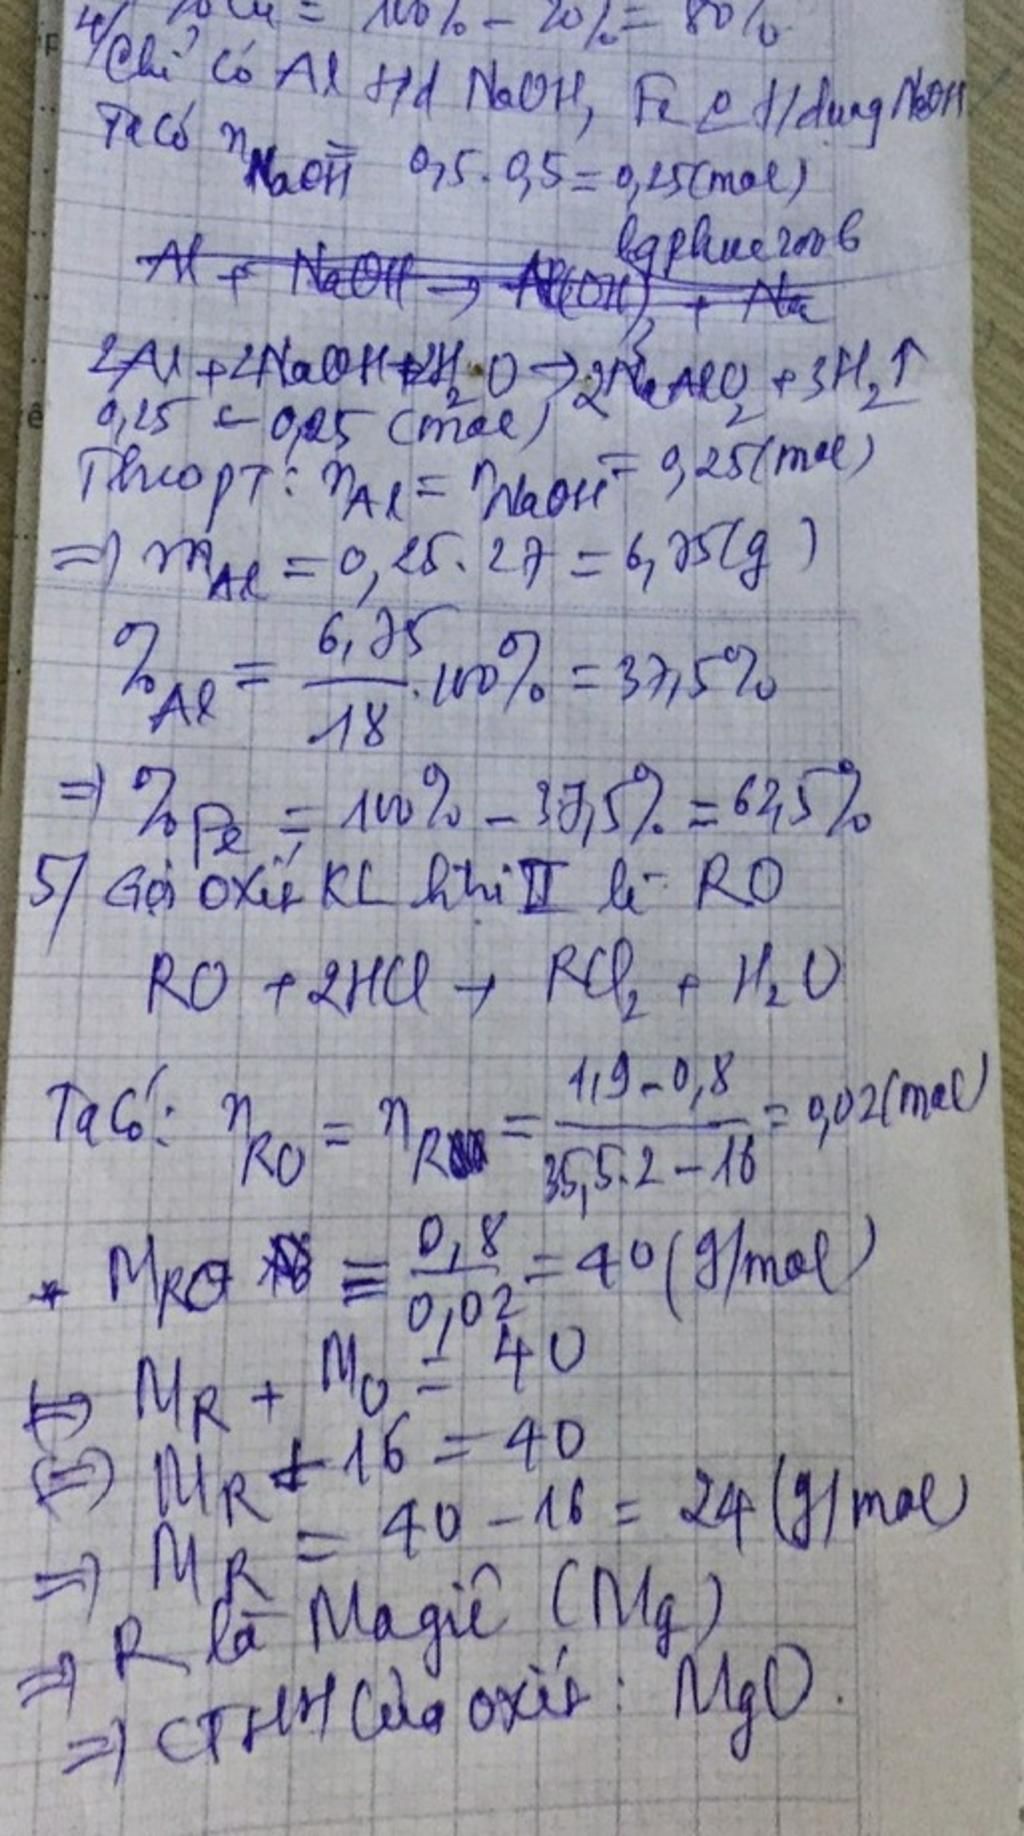 %Cu = 100% - 20% = 80%
4/ Chỉ có Al t/d NaOH, Fe t/dụng NaOH
Ta có n NaOH = 0,5 . 0,5 = 0,25 (mol)
Al + NaOH → Al(OH)3 + Na
2Al + 2NaOH + 2H2O → 2NaAlO2 + 3H2↑
0,25 ← 0,25 (mol)
Theo PT: nAl = nNaOH = 0,25 (mol)
=> mAl = 0,25 . 27 = 6,75 (g)
%Al = 6,75/18 . 100% = 37,5%
=> %Fe = 100% - 37,5% = 62,5%
5/ Gọi oxit KL htrị II là RO
RO + 2HCl → RCl2 + H2O
Ta có: nRO = nR = (1,9 - 0,8)/(35,5.2 - 16) = 0,02 (mol)
* MRO = 0,8/0,02 = 40 (g/mol)
<=> MR + MO = 40
<=> MR + 16 = 40
=> MR = 40 - 16 = 24 (g/mol)
=> R là Magiê (Mg)
=> CTHH của oxit: MgO.